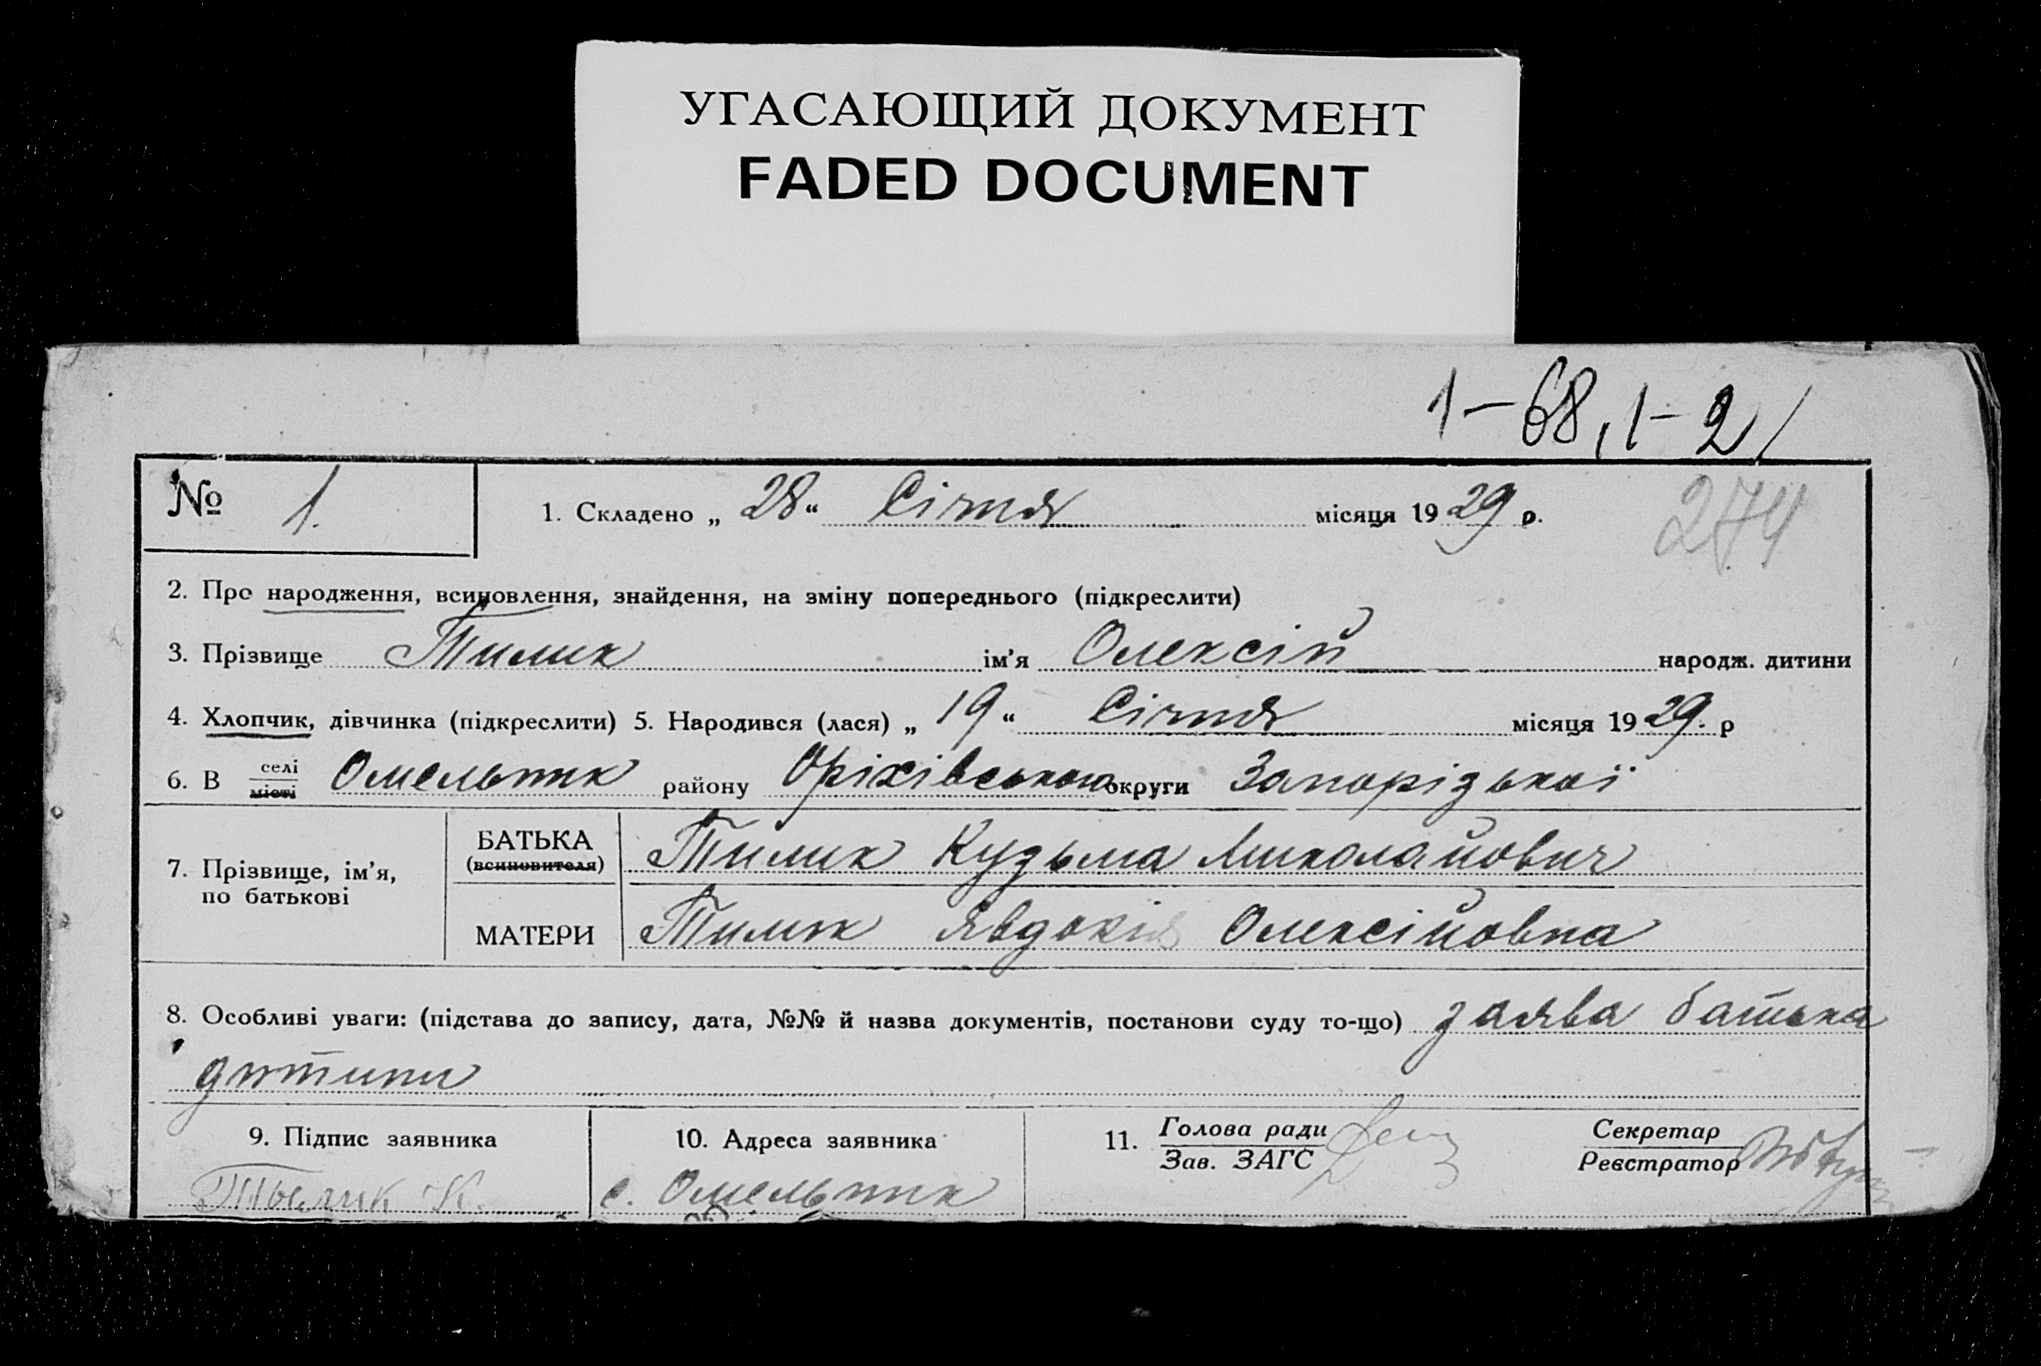 УГАСАЮЩИЙ ДОКУМЕНТ
FADED DOCUMENT
1–68, 1–2
№ 1. 1. Складено „ 28 “ Січня місяця 19 29 р. 274
2. Про народження, всиновлення, знайдення, на зміну попереднього (підкреслити)
3. Прізвище Тилик ім’я Олексій народж. дитини
4. Хлопчик, дівчинка (підкреслити) 5. Народився (лася) „ 19 “ Січня місяця 19 29. р
6. В селі місті Омельник району Оріхівського округи Запорізької
7. Прізвище, ім’я, по батькові
БАТЬКА (всиновителя) Тилик Кузьма Миколайович
МАТЕРИ Тилик Явдокія Олексійовна
8. Особливі уваги: (підстава до запису, дата, №№ й назва документів, постанови суду то-що) заява батька
дитини
9. Підпис заявника 10. Адреса заявника 11. Голова ради Зав. ЗАГС Секретар Реєстратор
Тылик К. с. Омельник